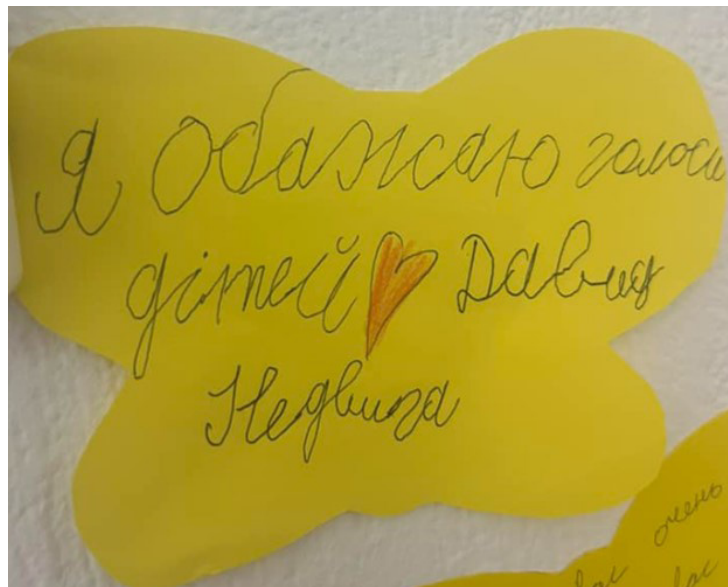 Я Обажаю голоси
дітей Давид
Недвига
очень